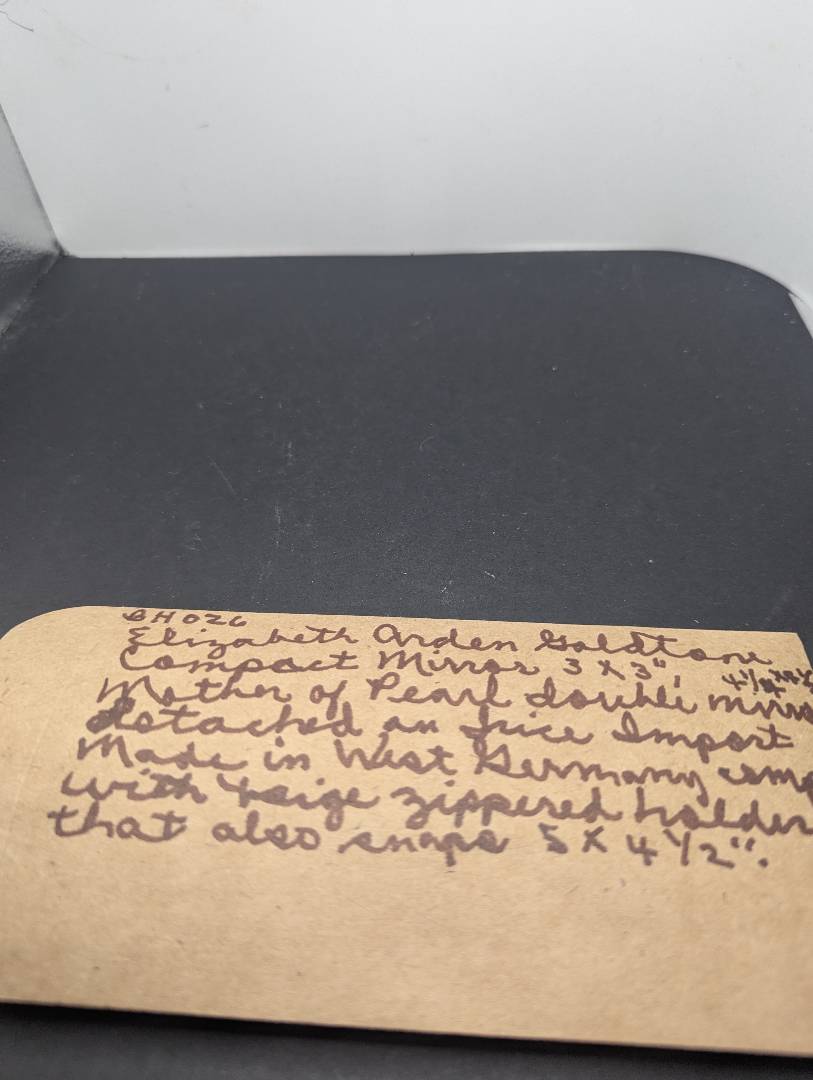 BH026
Elizabeth Arden Goldtone
Compact Mirror 3 X 3",
Mother of Pearl double
detached an Juice Import
Made in West Germany
with zippered holder
that also snaps 5 X 4 1/2".